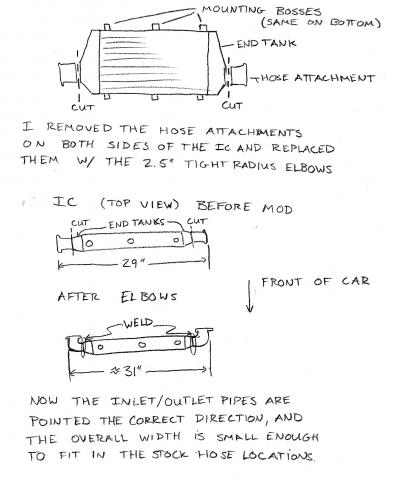 MOUNTING BOSSES
(SAME ON BOTTOM)
END TANK
HOSE ATTACHMENT
CUT
CUT
I REMOVED THE HOSE ATTACHMENTS
ON BOTH SIDES OF THE IC AND REPLACED
THEM W/ THE 2.5" TIGHT RADIUS ELBOWS
IC (TOP VIEW) BEFORE MOD
CUT
END TANKS
CUT
29"
FRONT OF CAR
AFTER ELBOWS
WELD
≈31"
NOW THE INLET/OUTLET PIPES ARE
POINTED THE CORRECT DIRECTION, AND
THE OVERALL WIDTH IS SMALL ENOUGH
TO FIT IN THE STOCK HOSE LOCATIONS.